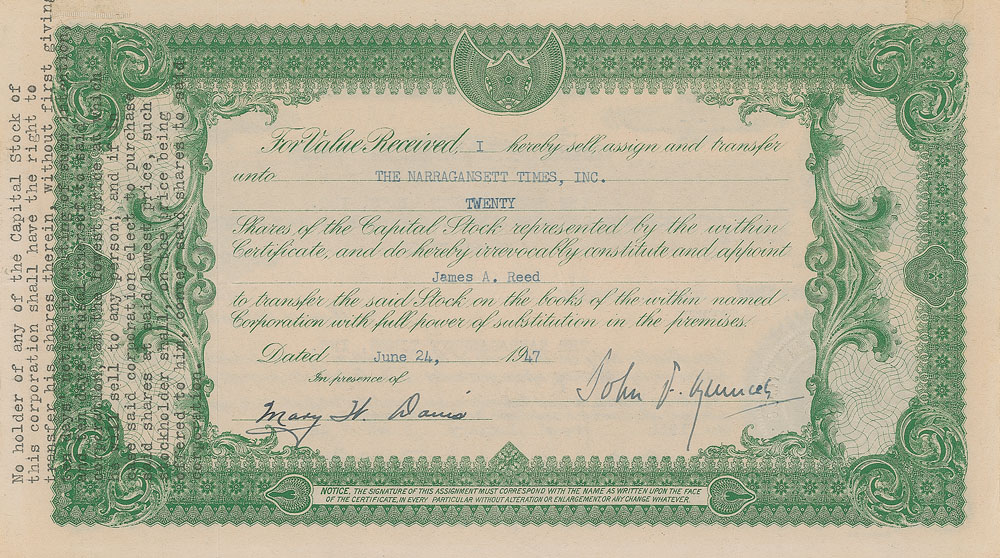 No holder of any of the Capital Stock of
this corporation shall have the right to
transfer his shares therein without first giving
days notice in writing of such intention
lowest price at which
sell to any person; and if the
said corporation elect to purchase
shares at said lowest price, such
shall, on the price being
to him, said shares to said
For Value Received, I hereby sell, assign and transfer
unto THE NARRAGANSETT TIMES, INC.
TWENTY
Shares of the Capital Stock represented by the within
Certificate, and do hereby irrevocably constitute and appoint
James A. Reed
to transfer the said Stock on the books of the within named
Corporation with full power of substitution in the premises.
Dated June 24, 1947
In presence of
John F.
Mary H. Davis
NOTICE, THE SIGNATURE OF THIS ASSIGNMENT MUST CORRESPOND WITH THE NAME AS WRITTEN UPON THE FACE
OF THE CERTIFICATE, IN EVERY PARTICULAR WITHOUT ALTERATION OR ENLARGEMENT, OR ANY CHANGE WHATEVER.